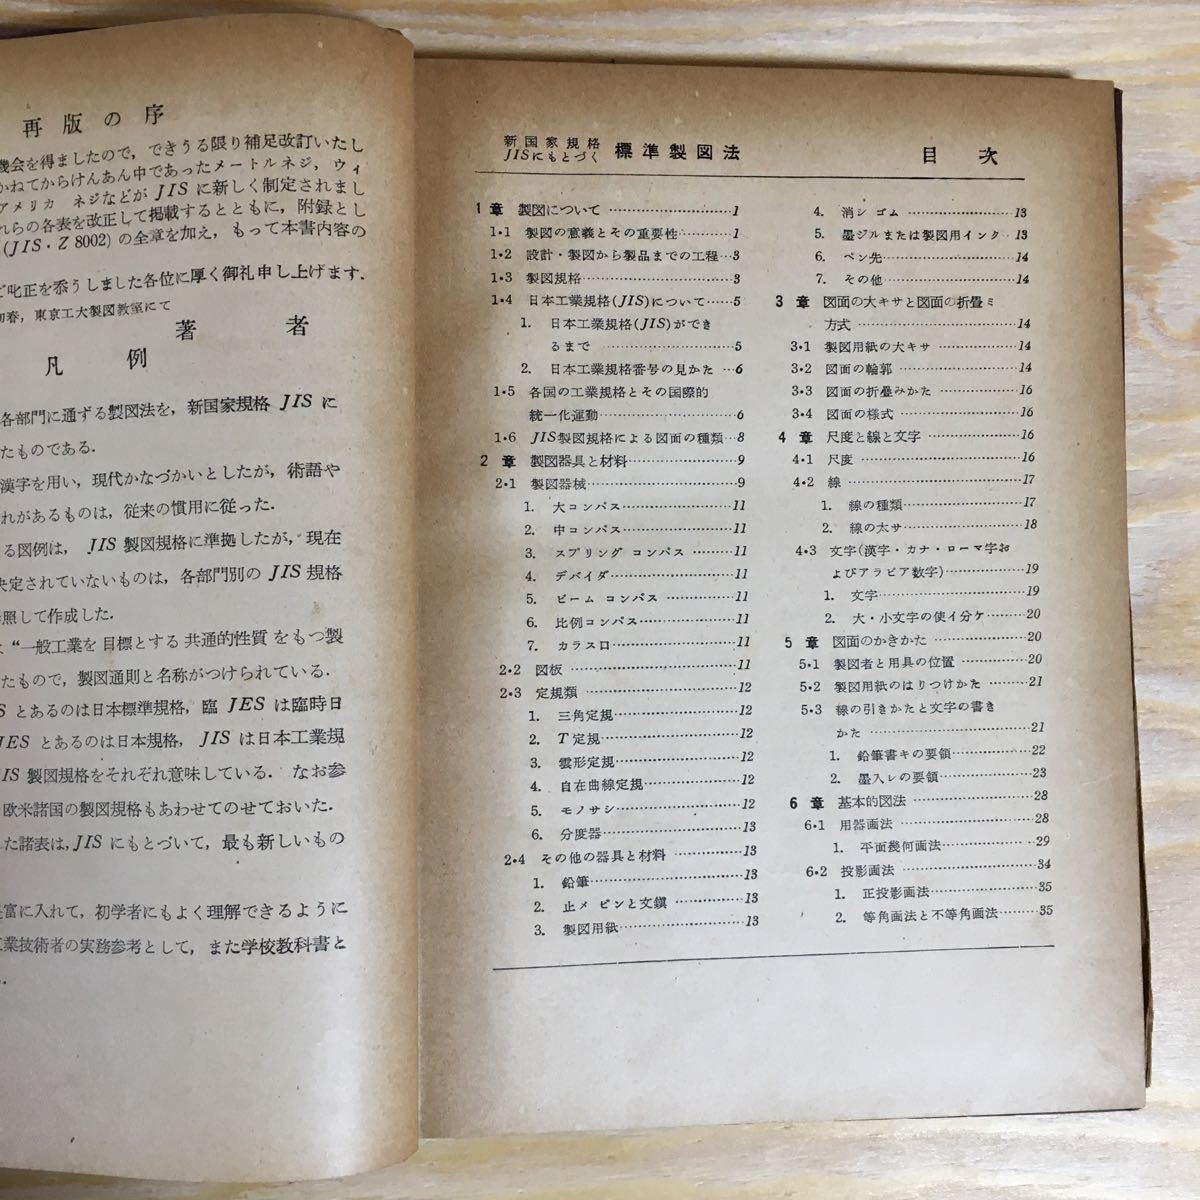 再版の序
機会を得ましたので，できうる限り補足改訂いたし
かねてからけんあん中であったメートルネジ，ウィ
アメリカ ネジなどが JIS に新しく制定されまし
れらの各表を改正して掲載するとともに，附録とし
(JIS・Z 8002) の全章を加え，もって本書内容の
ご叱正を添うしました各位に厚く御礼申し上げます．
初春，東京工大製図教室にて
著 者
凡 例
各部門に通ずる製図法を，新国家規格 JIS に
たものである．
漢字を用い，現代かなづかいとしたが，術語や
れがあるものは，従来の慣用に従った．
る図例は， JIS 製図規格に準拠したが，現在
決定されていないものは，各部門別の JIS 規格
照して作成した．
“一般工業を目標とする共通的性質をもつ製
たもので，製図通則と名称がつけられている．
S とあるのは日本標準規格，臨 JES は臨時日
JES とあるのは日本規格， JIS は日本工業規
IS 製図規格をそれぞれ意味している．なお参
欧米諸国の製図規格もあわせてのせておいた．
た諸表は，JIS にもとづいて，最も新しいもの
富に入れて，初学者にもよく理解できるように
工業技術者の実務参考として，また学校教科書と
新国家規格
JISにもとづく 標準製図法 目次
1章 製図について……………1
1・1 製図の意義とその重要性………1
1・2 設計・製図から製品までの工程…3
1・3 製図規格……………3
1・4 日本工業規格(JIS)について……5
1. 日本工業規格(JIS)ができ
るまで ……………5
2. 日本工業規格番号の見かた …6
1・5 各国の工業規格とその国際的
統一化運動……………6
1・6 JIS製図規格による図面の種類…8
2章 製図器具と材料……………9
2・1 製図器械……………9
1. 大コンパス……………11
2. 中コンパス……………11
3. スプリング コンパス………11
4. デバイダ……………11
5. ビーム コンパス …………11
6. 比例コンパス……………11
7. カラス口……………11
2・2 図板 ……………11
2・3 定規類 ……………12
1. 三角定規……………12
2. T定規……………12
3. 雲形定規……………12
4. 自在曲線定規……………12
5. モノサシ……………12
6. 分度器……………13
2・4 その他の器具と材料 …………13
1. 鉛筆……………13
2. 止メ ピンと文鎮……………13
3. 製図用紙……………13
4. 消シ ゴム……………13
5. 墨ジルまたは製図用インク…13
6. ペン先……………14
7. その他……………14
3章 図面の大キサと図面の折畳ミ
方式……………14
3・1 製図用紙の大キサ……………14
3・2 図面の輪郭……………14
3・3 図面の折畳みかた……………16
3・4 図面の様式……………16
4章 尺度と線と文字……………16
4・1 尺度……………16
4・2 線……………17
1. 線の種類……………17
2. 線の太サ……………18
4・3 文字(漢字・カナ・ローマ字お
よびアラビア数字)……………19
1. 文字……………19
2. 大・小文字の使イ分ケ………20
5章 図面のかきかた……………20
5・1 製図者と用具の位置…………20
5・2 製図用紙のはりつけかた……21
5・3 線の引きかたと文字の書き
かた……………21
1. 鉛筆書キの要領……………22
2. 墨入レの要領……………23
6章 基本的図法……………28
6・1 用器画法……………28
1. 平面幾何画法……………29
6・2 投影画法……………34
1. 正投影画法……………35
2. 等角画法と不等角画法………35